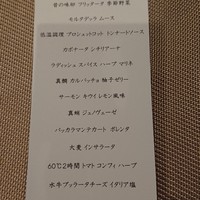 昔の味卵 フリッタータ 季節野菜
モルタデッラ ムース
低温調理 プロシュットコット トンナートソース
カポナータ シチリアーナ
ラディッシュ スパイス ハーブ マリネ
真鯛 カルパッチョ 柚子ゼリー
サーモン キウイ レモン風味
真鯛 ジェノヴェーゼ
バッカラマンテカート ポレンタ
大麦 インサラータ
60℃2時間 トマト コンフィ ハーブ
水牛ブッラータチーズ イタリア塩